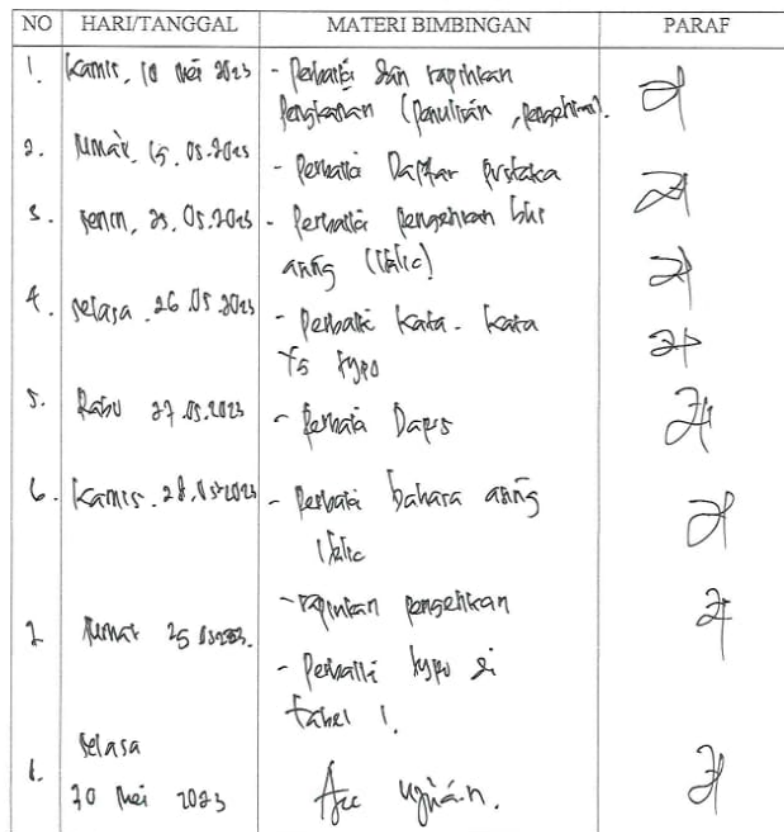 NO HARI/TANGGAL MATERI BIMBINGAN PARAF
1. Kamis, 10 Mei 2023 - Perbaiki dan rapihkan
pengkanan (penulisan, pengetikan).
2. Jumat, 15.05.2023
- Perbaiki Daftar pustaka
3. Senin, 25.05.2023 - Perbaiki pengetikan bhs
asing (Italic)
4. Selasa. 26.05.2023
- Perbaiki Kata-kata
yg typo
5. Rabu 27.05.2023
- Perbaiki Dapus
6. Kamis. 28.05.2023 - Perbaiki bahasa asing
Italic
- rapihkan pengetikan
7 Jumat
- Perbaiki typo di
tabel 1.
Selasa
30 Mei 2023 Acc Ujian.